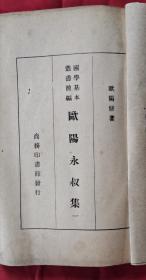 歐陽修著
國學基本
叢書簡編
歐陽永叔集 一
商務印書館發行